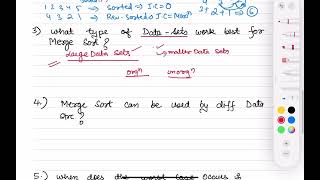 1 2 3 4 5 ⇒ Sorted ⇒ IC = 0
4 3 2 1 ⇒ Rev-Sorted ⇒ IC = Max^m
3 + 2 + 1 ⇒ 6
3) What type of Data-Sets work best for
Merge Sort?
Large Data Sets smaller Data Sets
org^n unorg^n
4.) Merge Sort can be used by diff Data
Src?
5.) When does the worst case occurs in